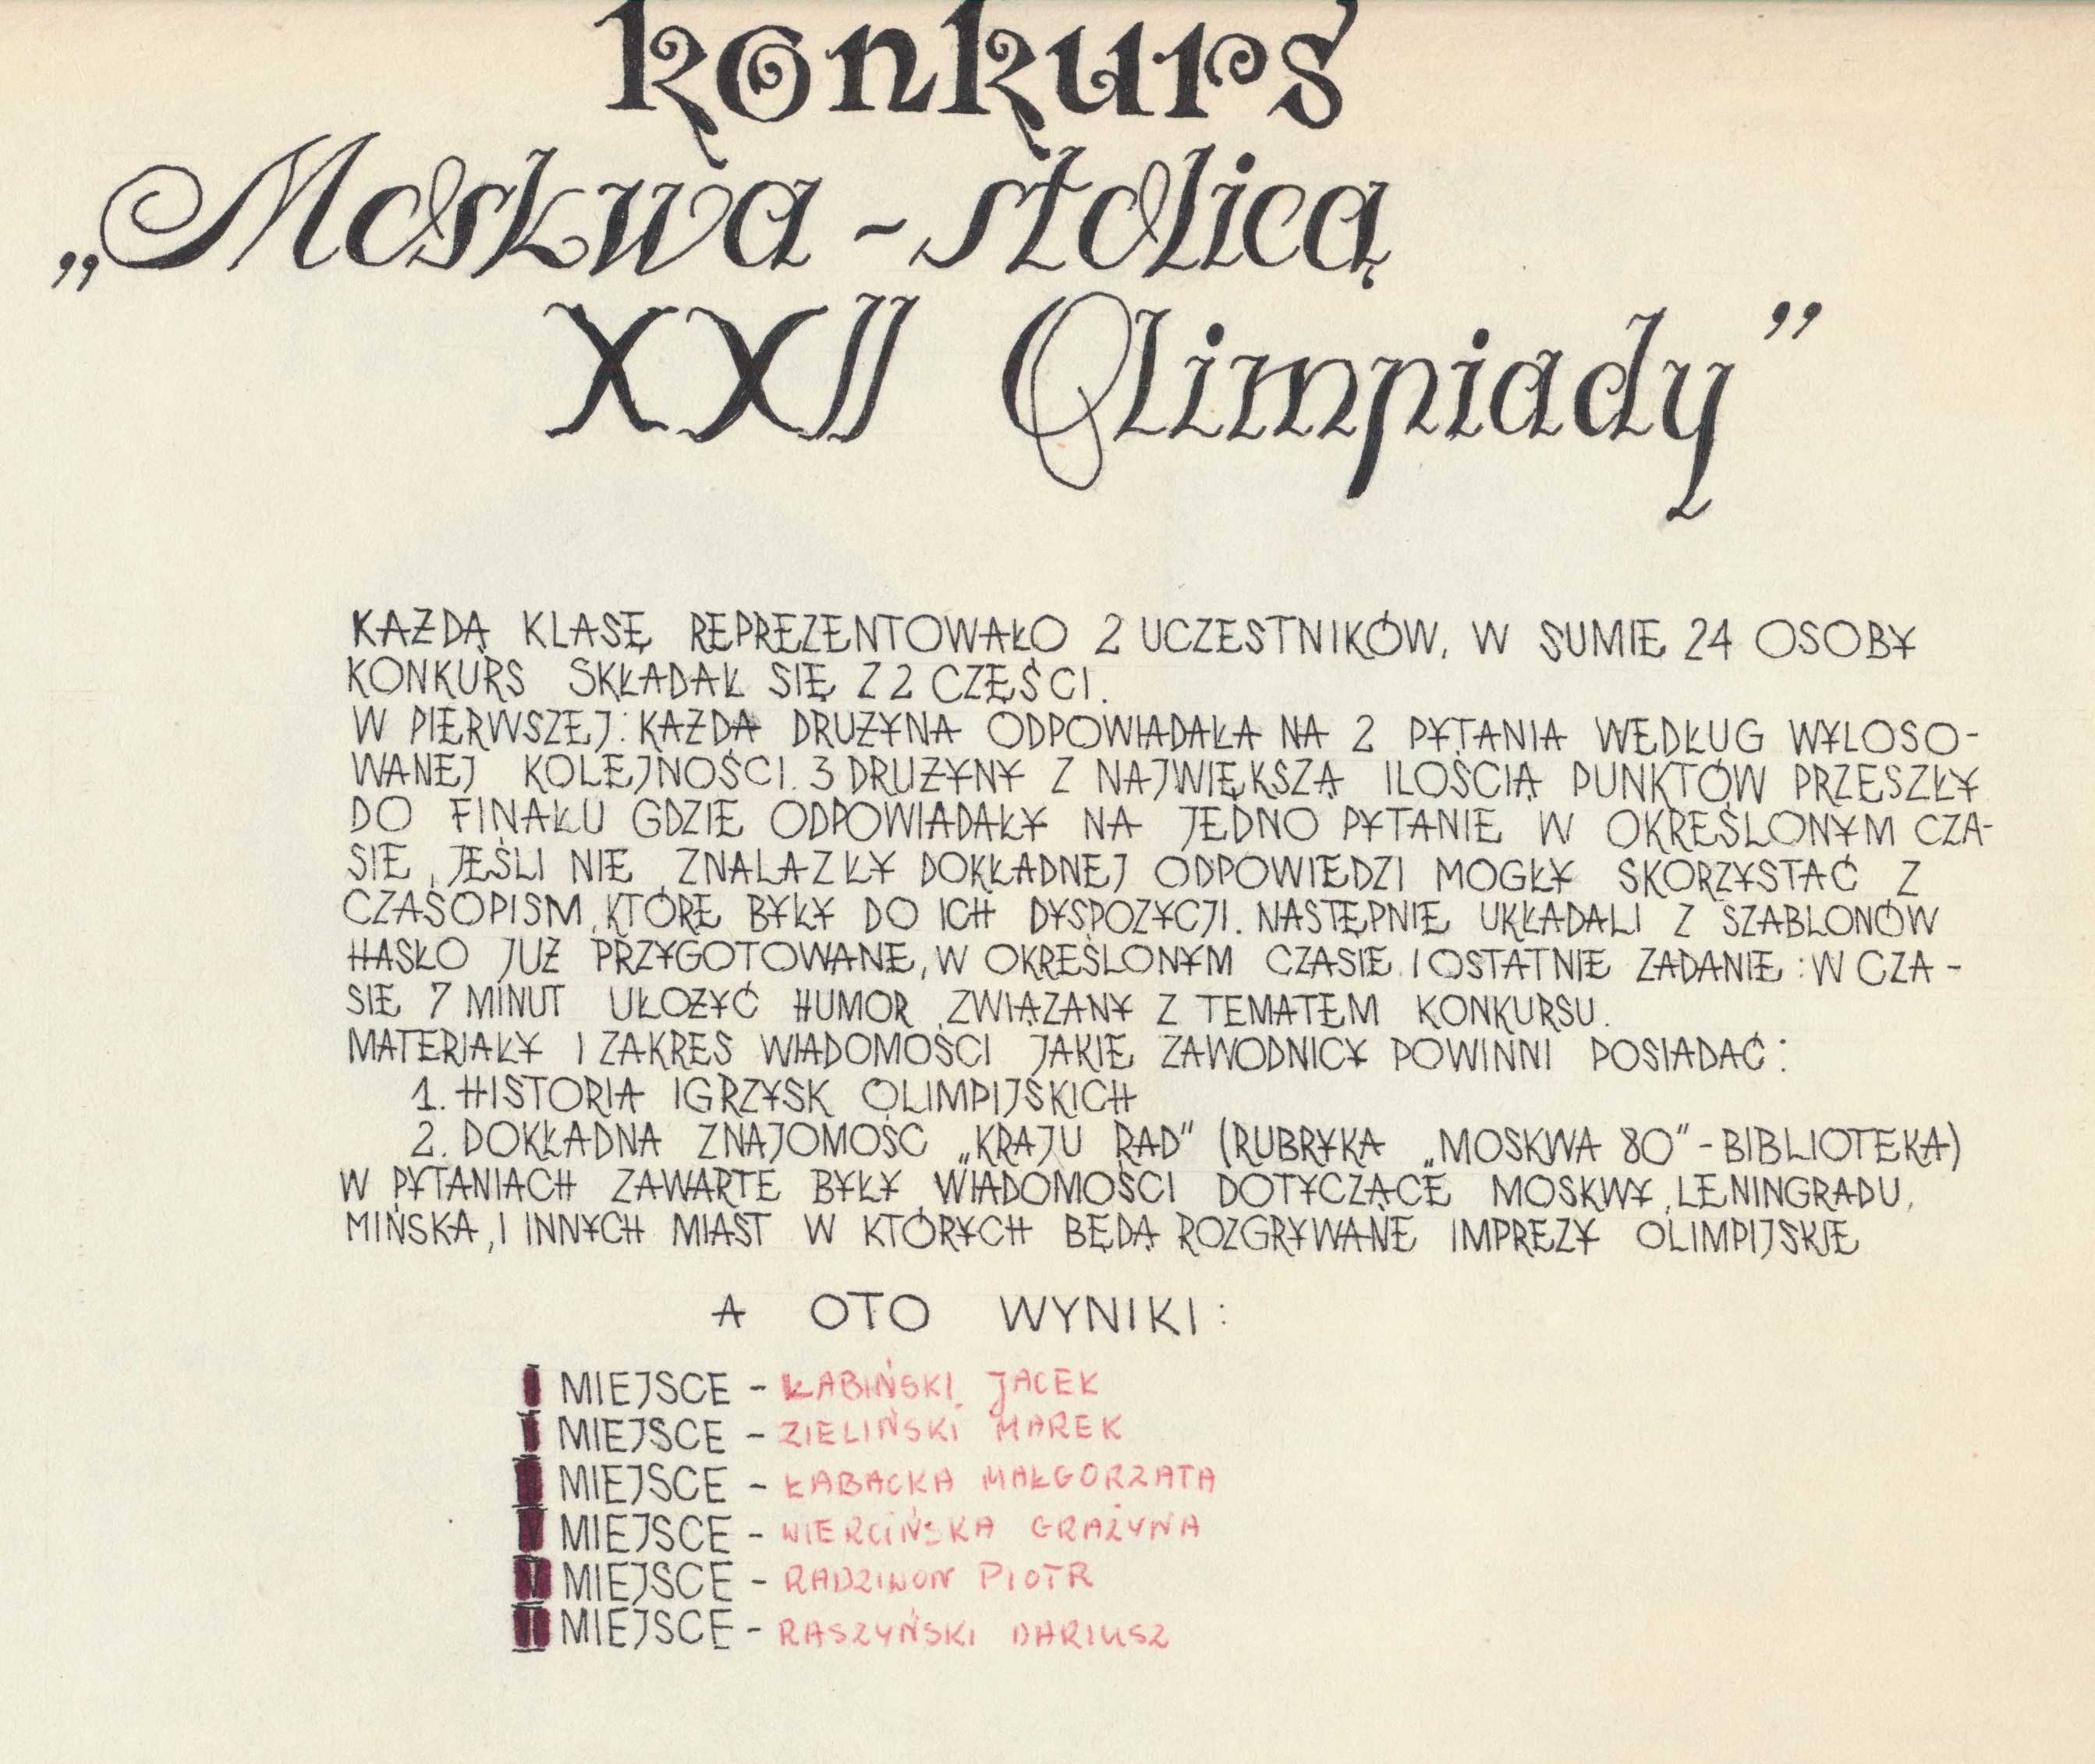 konkurs
„Moskwa - stolicą
XXII Olimpiady”
KAŻDĄ KLASĘ REPREZENTOWAŁO 2 UCZESTNIKÓW, W SUMIE 24 OSOBY
KONKURS SKŁADAŁ SIĘ Z 2 CZĘŚCI.
W PIERWSZEJ: KAŻDA DRUŻYNA ODPOWIADAŁA NA 2 PYTANIA WEDŁUG WYLOSO-
WANEJ KOLEJNOŚCI. 3 DRUŻYNY Z NAJWIĘKSZĄ ILOŚCIĄ PUNKTÓW PRZESZŁY
DO FINAŁU GDZIE ODPOWIADAŁY NA JEDNO PYTANIE W OKREŚLONYM CZA-
SIE, JEŚLI NIE ZNALAZŁY DOKŁADNEJ ODPOWIEDZI MOGŁY SKORZYSTAĆ Z
CZASOPISM, KTÓRE BYŁY DO ICH DYSPOZYCJI. NASTĘPNIE UKŁADALI Z SZABLONÓW
HASŁO JUŻ PRZYGOTOWANE, W OKREŚLONYM CZASIE. I OSTATNIE ZADANIE: W CZA-
SIE 7 MINUT UŁOŻYĆ HUMOR ZWIĄZANY Z TEMATEM KONKURSU.
MATERIAŁY I ZAKRES WIADOMOŚCI JAKIE ZAWODNICY POWINNI POSIADAĆ:
1. HISTORIA IGRZYSK OLIMPIJSKICH
2. DOKŁADNA ZNAJOMOŚĆ „KRAJU RAD" (RUBRYKA „MOSKWA 80" - BIBLIOTEKA)
W PYTANIACH ZAWARTE BYŁY WIADOMOŚCI DOTYCZĄCE MOSKWY, LENINGRADU,
MIŃSKA, I INNYCH MIAST W KTÓRYCH BĘDĄ ROZGRYWANE IMPREZY OLIMPIJSKIE
A OTO WYNIKI:
I MIEJSCE - ŁABIŃSKI JACEK
II MIEJSCE - ZIELIŃSKI MAREK
III MIEJSCE - ŁABACKA MAŁGORZATA
IV MIEJSCE - WIERCIŃSKA GRAŻYNA
V MIEJSCE - RADZIWON PIOTR
VI MIEJSCE - RASZYŃSKI DARIUSZ